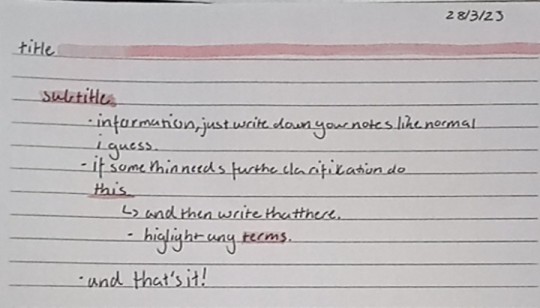 28/3/23
title
subtitle
· information, just write down your notes like normal
i guess.
- if somethin needs furthe clarifikation do
this
↳ and then write that there.
- higlight any terms.
· and that's it!